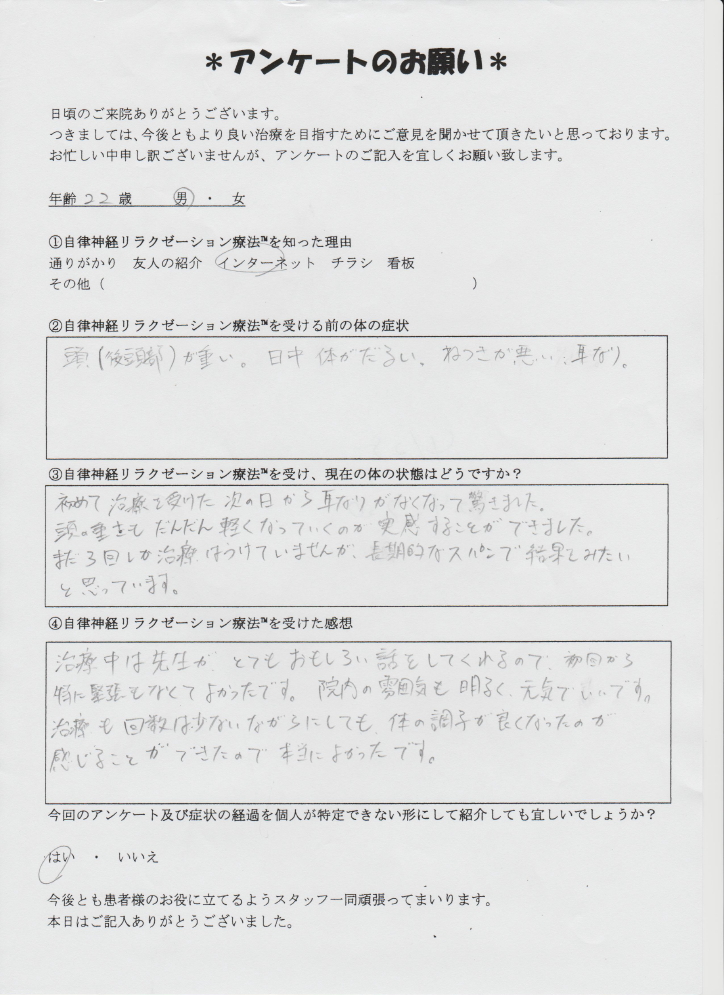 ＊アンケートのお願い＊
日頃のご来院ありがとうございます。
つきましては、今後ともより良い治療を目指すためにご意見を聞かせて頂きたいと思っております。
お忙しい中申し訳ございませんが、アンケートのご記入を宜しくお願い致します。
年齢 22 歳　男 ・ 女
①自律神経リラクゼーション療法™を知った理由
通りがかり　友人の紹介　インターネット　チラシ　看板
その他（　　　）
②自律神経リラクゼーション療法™を受ける前の体の症状
頭(後頭部)が重い。日中 体がだるい、ねつきが悪い、耳なり。
③自律神経リラクゼーション療法™を受け、現在の体の状態はどうですか？
初めて 治療を受けた 次の日 から 耳なりがなくなって驚きました。
頭の重さも だんだん 軽くなっていくのが 実感することができました。
まだ 3回しか 治療 はうけていませんが、長期的なスパンで 結果をみたい
と思っています。
④自律神経リラクゼーション療法™を受けた感想
治療中は 先生が とても おもしろい 話をしてくれるので、初回から
特に緊張もなくてよかったです。院内の雰囲気も 明るく、元気でいいです。
治療も 回数は少ないながらにしても、体の調子が良くなったのが
感じることができたので 本当によかったです。
今回のアンケート及び症状の経過を個人が特定できない形にして紹介しても宜しいでしょうか？
はい ・ いいえ
今後とも患者様のお役に立てるようスタッフ一同頑張ってまいります。
本日はご記入ありがとうございました。